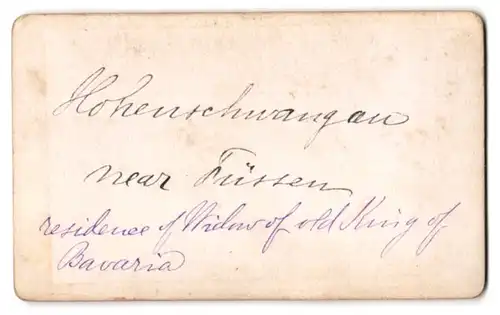 Hohenschwangau
near Füssen
residence of Widow of old King of
Bavaria